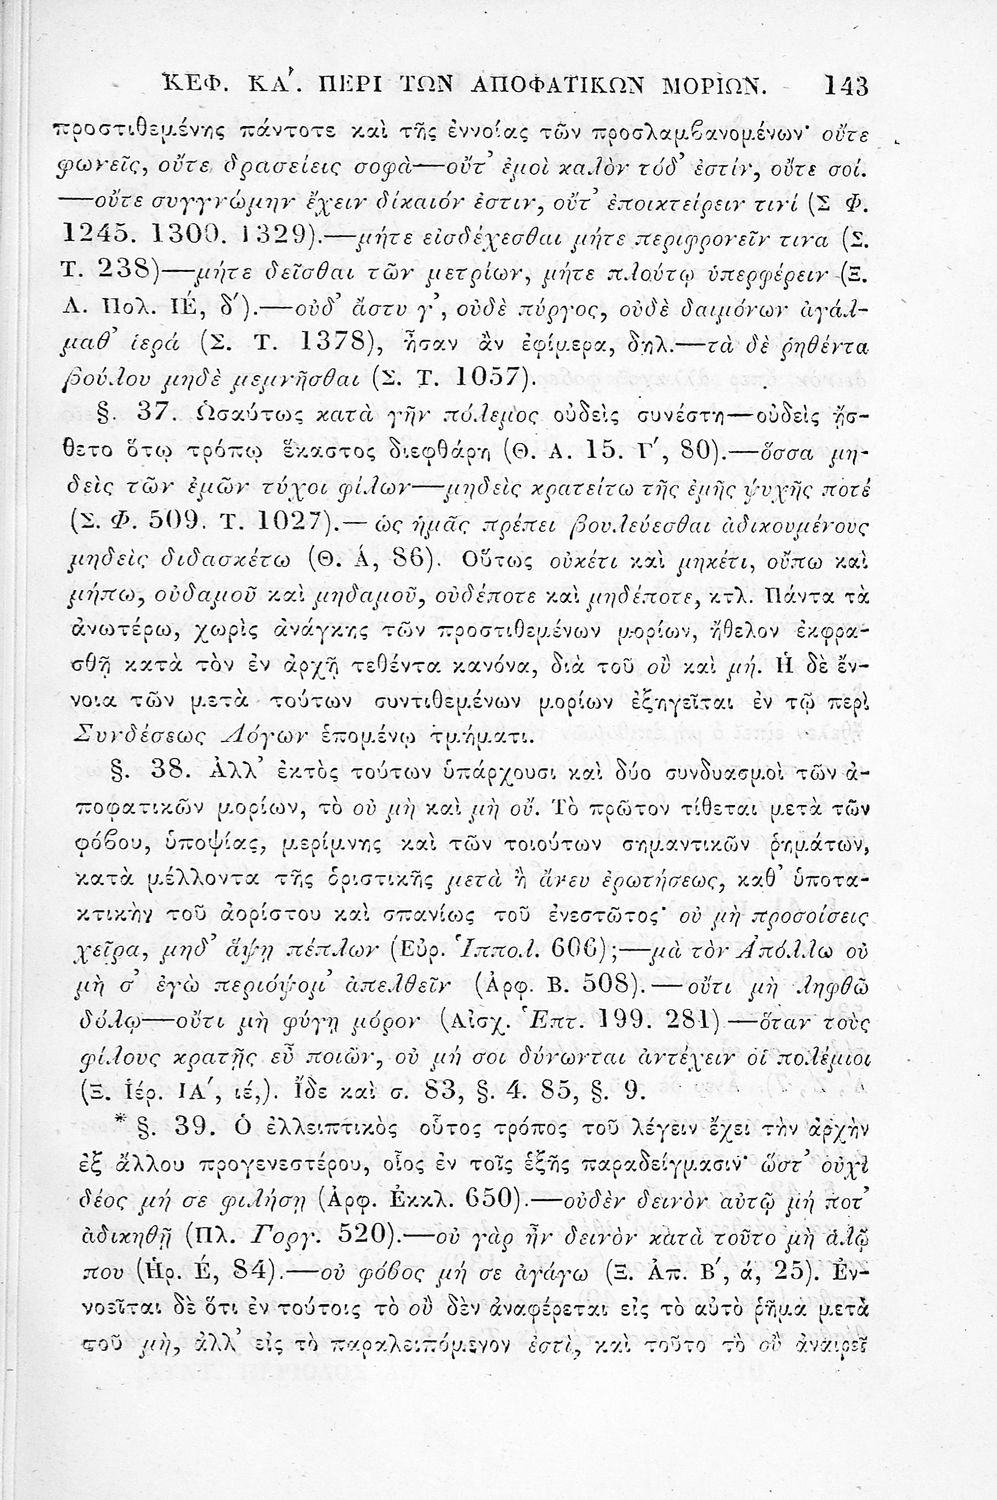 ΚΕΦ. ΚΑ΄. ΠΕΡΙ ΤΩΝ ΑΠΟΦΑΤΙΚΩΝ ΜΟΡΙΩΝ. 143
προστιθεμένης πάντοτε καὶ τῆς ἐννοίας τῶν προσλαμβανομένων· οὔτε
φωνεῖς, οὔτε δρασείεις σοφὰ—οὔτ’ ἐμοὶ καλὸν τόδ’ ἐστίν, οὔτε σοί.
—οὔτε συγγνώμην ἔχειν δίκαιόν ἐστιν, οὔτ’ ἐποικτείρειν τινί (Σ Φ.
1245. 1300. 1329).—μήτε εἰσδέχεσθαι μήτε περιφρονεῖν τινα (Σ.
Τ. 238)—μήτε δεῖσθαι τῶν μετρίων, μήτε πλούτῳ ὑπερφέρειν (Ξ.
Λ. Πολ. ΙΕ, δ′).—οὐδ’ ἄστυ γ’, οὐδὲ πύργος, οὐδὲ δαιμόνων ἀγάλ-
μαθ’ ἱερά (Σ. Τ. 1378), ἦσαν ἂν ἐφίμερα, δηλ.—τὰ δὲ ῥηθέντα
βούλου μηδὲ μεμνῆσθαι (Σ. Τ. 1057).
§. 37. Ὡσαύτως κατὰ γῆν πόλεμος οὐδεὶς συνέστη—οὐδεὶς ᾔσ-
θετο ὅτῳ τρόπῳ ἕκαστος διεφθάρη (Θ. Α. 15. Γ′, 80).—ὅσσα μη-
δεὶς τῶν ἐμῶν τύχοι φίλων—μηδεὶς κρατείτω τῆς ἐμῆς ψυχῆς ποτέ
(Σ. Φ. 509. Τ. 1027).—ὡς ἡμᾶς πρέπει βουλεύεσθαι ἀδικουμένους
μηδεὶς διδασκέτω (Θ. Ά, 86). Οὕτως οὐκέτι καὶ μηκέτι, οὔπω καὶ
μήπω, οὐδαμοῦ καὶ μηδαμοῦ, οὐδέποτε καὶ μηδέποτε, κτλ. Πάντα τὰ
ἀνωτέρω, χωρὶς ἀνάγκης τῶν προστιθεμένων μορίων, ἤθελον ἐκφρα-
σθῆ κατὰ τὸν ἐν ἀρχῇ τεθέντα κανόνα, διὰ τοῦ οὐ καὶ μή. Ἡ δὲ ἔν-
νοια τῶν μετὰ τούτων συντιθεμένων μορίων ἐξηγεῖται ἐν τῷ περὶ
Συνδέσεως Λόγων ἑπομένῳ τμήματι.
§. 38. Ἀλλ’ ἐκτὸς τούτων ὑπάρχουσι καὶ δύο συνδυασμοὶ τῶν ἀ-
ποφατικῶν μορίων, τὸ οὐ μὴ καὶ μὴ οὐ. Τὸ πρῶτον τίθεται μετὰ τῶν
φόβου, ὑποψίας, μερίμνης καὶ τῶν τοιούτων σημαντικῶν ῥημάτων,
κατὰ μέλλοντα τῆς ὁριστικῆς μετὰ ἢ ἄνευ ἐρωτήσεως, καθ’ ὑποτα-
κτικὴν τοῦ ἀορίστου καὶ σπανίως τοῦ ἐνεστῶτος· οὐ μὴ προσοίσεις
χεῖρα, μηδ’ ἅψῃ πέπλων (Εὐρ. Ἱππολ. 606);—μὰ τὸν Ἀπόλλω οὐ
μὴ σ’ ἐγὼ περιόψομ’ ἀπελθεῖν (Ἀρφ. Β. 508).—οὔτι μὴ ληφθῶ
δόλῳ—οὔτι μὴ φύγῃ μόρον (Αἰσχ. Ἑπτ. 199. 281)—ὅταν τοὺς
φίλους κρατῇς εὖ ποιῶν, οὐ μή σοι δύνωνται ἀντέχειν οἱ πολέμιοι
(Ξ. Ἱέρ. ΙΑ′, ιέ,). Ἴδε καὶ σ. 83, §. 4. 85, §. 9.
* §. 39. Ὁ ἐλλειπτικὸς οὗτος τρόπος τοῦ λέγειν ἔχει τὴν ἀρχὴν
ἐξ ἄλλου προγενεστέρου, οἷος ἐν τοῖς ἑξῆς παραδείγμασιν· ὥστ’ οὐχὶ
δέος μή σε φιλήσῃ (Ἀρφ. Ἐκκλ. 650).—οὐδὲν δεινὸν αὐτῷ μή ποτ’
ἀδικηθῇ (Πλ. Γοργ. 520).—οὐ γὰρ ἦν δεινὸν κατὰ τοῦτο μὴ ἁλῷ
που (Ἡρ. Έ, 84).—οὐ φόβος μή σε ἀγάγω (Ξ. Ἀπ. Β′, ά, 25). Ἐν-
νοεῖται δὲ ὅτι ἐν τούτοις τὸ οὐ δὲν ἀναφέρεται εἰς τὸ αὐτὸ ῥῆμα μετὰ
τοῦ μὴ, ἀλλ’ εἰς τὸ παραλειπόμενον ἐστὶ, καὶ τοῦτο τὸ οὐ ἀναιρεῖ